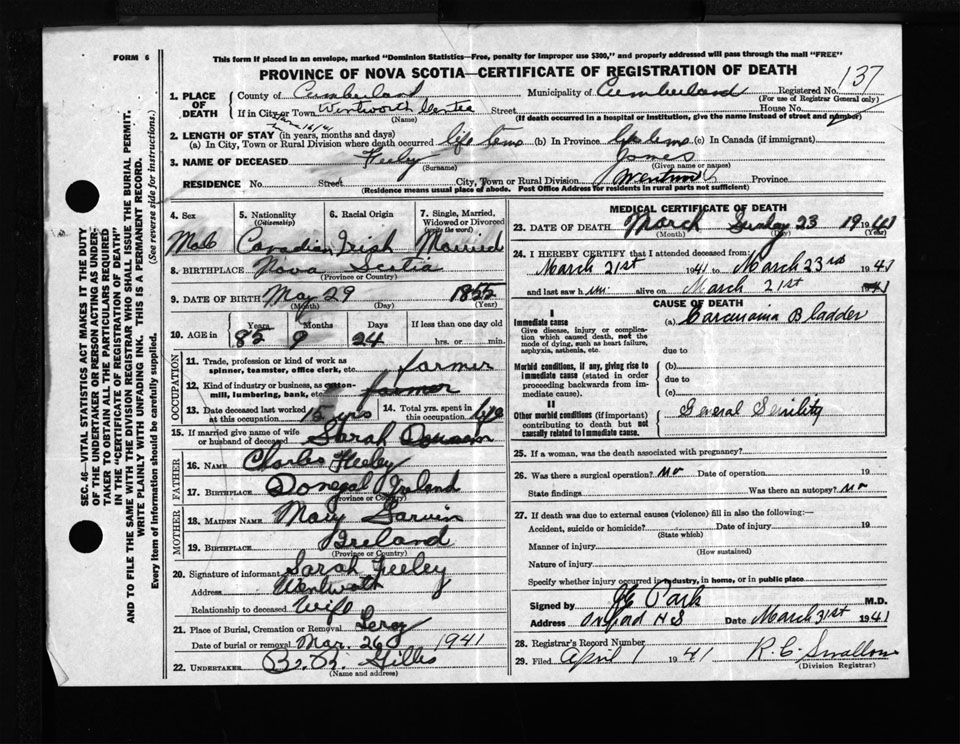 FORM 6
This form if placed in an envelope, marked "Dominion Statistics—Free, penalty for improper use $300," and properly addressed will pass through the mail "FREE"
PROVINCE OF NOVA SCOTIA—CERTIFICATE OF REGISTRATION OF DEATH
137
1. PLACE OF DEATH
County of Cumberland Municipality of Cumberland Registered No.
(For use of Registrar General only)
If in City or Town Wentworth Street House No.
(Name) (If death occurred in a hospital or institution, give the name instead of street and number)
2. LENGTH OF STAY (in years, months and days)
(a) In City, Town or Rural Division where death occurred life (b) In Province (c) In Canada (if immigrant)
3. NAME OF DECEASED Feely
(Surname) (Given name or names)
RESIDENCE No. Street City, Town or Rural Division Province
(Residence means usual place of abode. Post Office Address for residents in rural parts not sufficient)
4. Sex
Male
5. Nationality
(Citizenship)
Canadian
6. Racial Origin
Irish
7. Single, Married, Widowed or Divorced
(write the word)
Married
8. BIRTHPLACE Nova Scotia
(Province or Country)
9. DATE OF BIRTH May 29
(Month) (Day) (Year)
10. AGE in
Years Months Days If less than one day old
82 9 24 hrs. or min.
OCCUPATION
11. Trade, profession or kind of work as spinner, teamster, office clerk, etc. farmer
12. Kind of industry or business, as cotton-mill, lumbering, bank, etc. farmer
13. Date deceased last worked at this occupation 15 yrs 14. Total yrs. spent in this occupation life
15. If married give name of wife or husband of deceased Sarah
FATHER
16. NAME Charles Feeley
17. BIRTHPLACE Donegal Ireland
(Province or Country)
MOTHER
18. MAIDEN NAME Mary Garvin
19. BIRTHPLACE Ireland
(Province or Country)
20. Signature of informant Sarah Feeley
Address Wentworth
Relationship to deceased Wife
21. Place of Burial, Cremation or Removal
Date of burial or removal Mar. 26 1941
22. UNDERTAKER Gillis
(Name and address)
MEDICAL CERTIFICATE OF DEATH
23. DATE OF DEATH March 23 1941
(Month) (Day) (Year)
24. I HEREBY CERTIFY that I attended deceased from
March 21st 1941 to March 23rd 1941
and last saw him alive on March 21st 1941
CAUSE OF DEATH
I
Immediate cause (a) Carcinoma Bladder
Give disease, injury or complication which caused death, not the mode of dying, such as heart failure, asphyxia, asthenia, etc.
due to
Morbid conditions, if any, giving rise to immediate cause (stated in order proceeding backwards from immediate cause).
(b)
due to
(c)
II
Other morbid conditions (if important) contributing to death but not causally related to immediate cause.
General Senility
25. If a woman, was the death associated with pregnancy?
26. Was there a surgical operation? No Date of operation 19
State findings Was there an autopsy? No
27. If death was due to external causes (violence) fill in also the following:—
Accident, suicide or homicide? Date of injury 19
(State which)
Manner of injury
(How sustained)
Nature of injury
Specify whether injury occurred in industry, in home, or in public place
Signed by Park M.D.
Address Oxford N S Date March 31st 1941
28. Registrar's Record Number
29. Filed April 1 1941 R. C. Swallow
(Division Registrar)
SEC. 46—VITAL STATISTICS ACT MAKES IT THE DUTY
OF THE UNDERTAKER OR PERSON ACTING AS UNDERTAKER TO OBTAIN ALL THE PARTICULARS REQUIRED
IN THE "CERTIFICATE OF REGISTRATION OF DEATH"
AND TO FILE THE SAME WITH THE DIVISION REGISTRAR WHO SHALL ISSUE THE BURIAL PERMIT.
WRITE PLAINLY WITH UNFADING INK. THIS IS A PERMANENT RECORD.
Every item of information should be carefully supplied. (See reverse side for instructions.)